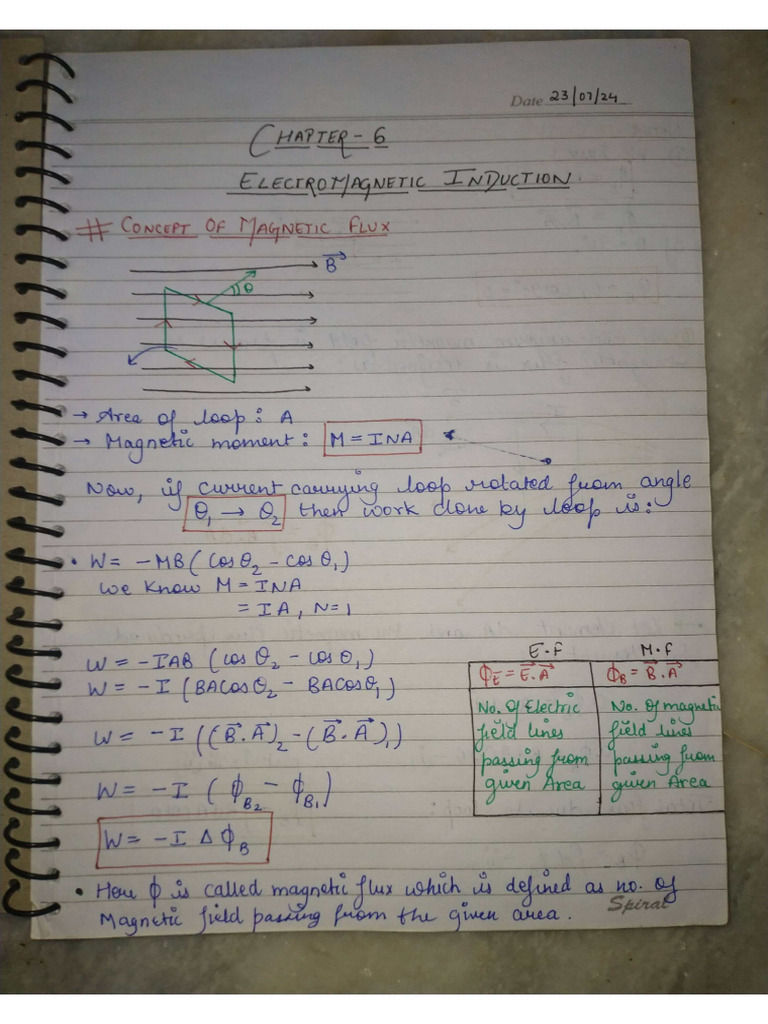 Date 23/07/24
CHAPTER-6
ELECTROMAGNETIC INDUCTION
# CONCEPT OF MAGNETIC FLUX
B⃗
θ
→ Area of loop : A
→ Magnetic moment : M = INA
Now, if current carrying loop rotated from angle
θ₁ → θ₂ then work done by loop is:
• W = -MB(cosθ₂ - cosθ₁)
we know M = INA
= IA, N=1
W = -IAB (cosθ₂ - cosθ₁)
W = -I (BAcosθ₂ - BAcosθ₁)
W = -I ((B⃗.A⃗)₂ - (B⃗.A⃗)₁)
W = -I (ϕ_B₂ - ϕ_B₁)
W = -I Δϕ_B
E.f M.f
ϕ_E⃗ = E⃗.A⃗ ϕ_B = B⃗.A⃗
No. of Electric No. of magnetic
field lines field lines
passing from passing from
given Area given Area
• Here ϕ is called magnetic flux which is defined as no. of
Magnetic field passing from the given area.
Spiral